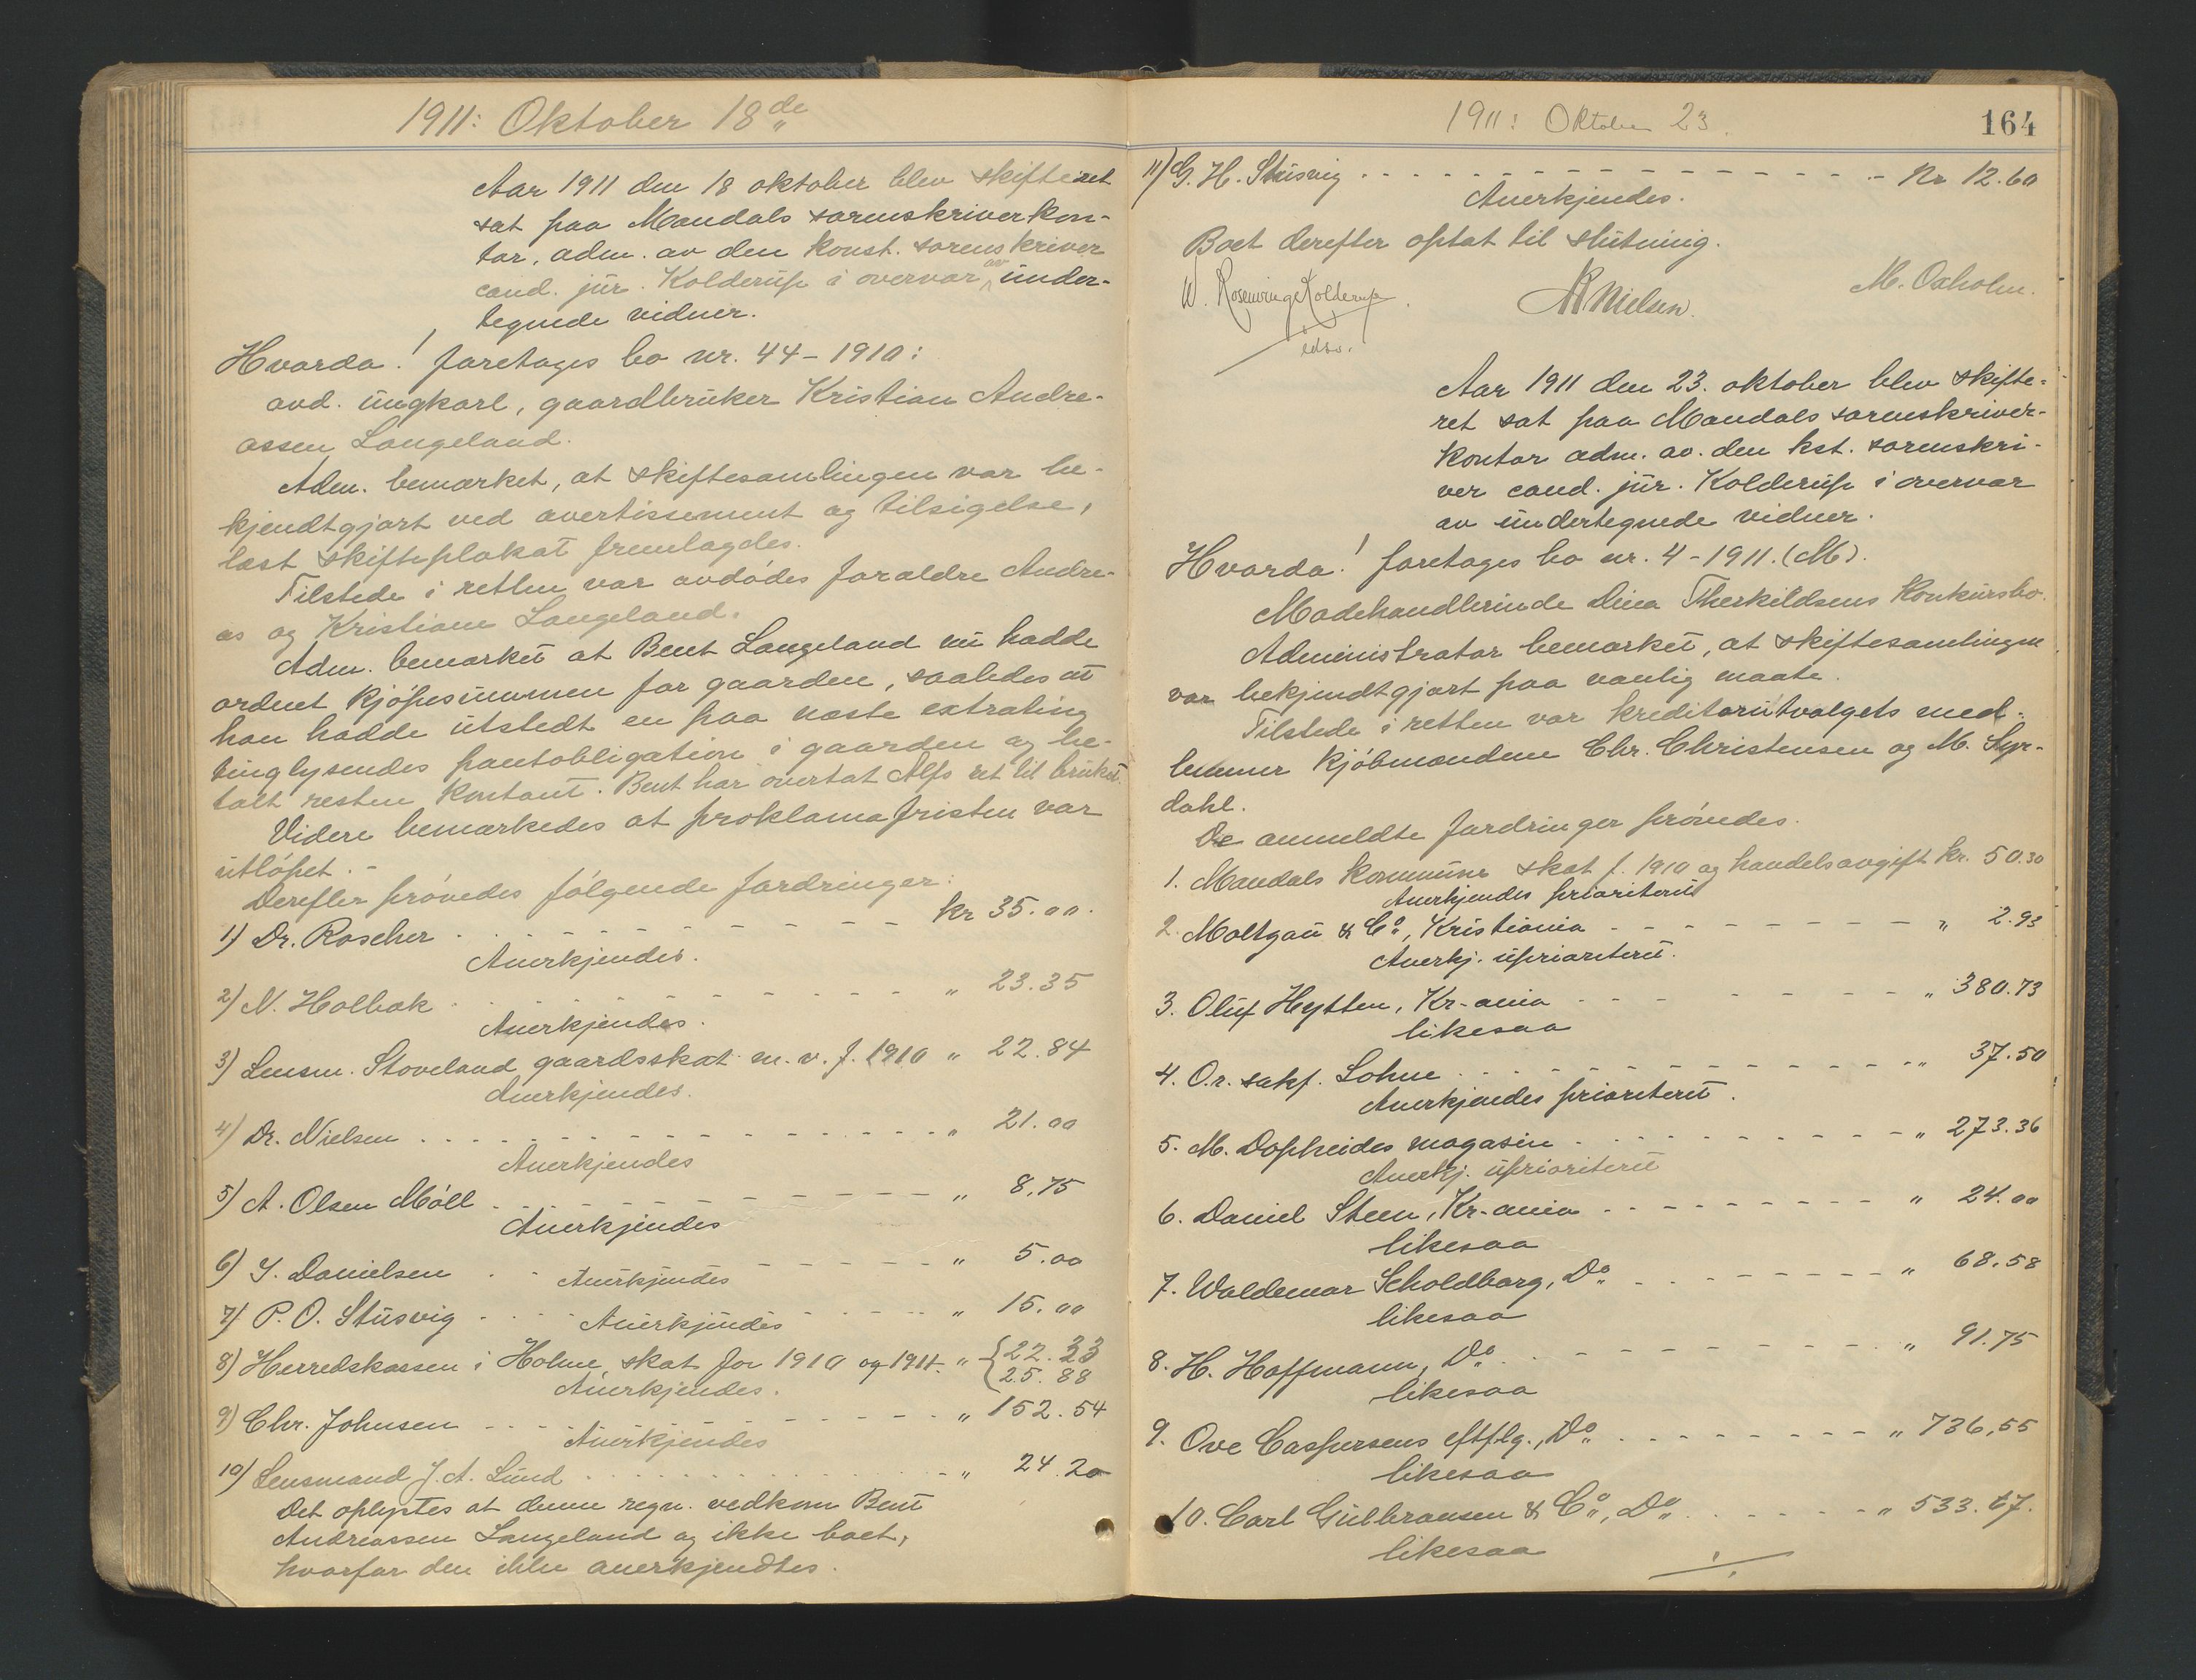 1911: Oktober 18de
Aar 1911 den 18 oktober blev skifteret
sat paa Mandals sorenskriverkon-
tor, adm. av den konst. sorenskriver
cand. jur. Kolderup i overvær av under-
tegnede vidner.
Hvorda! foretages bo nr. 44-1910:
avd. ungkarl, gaardbruker Kristian Andre-
assen Langeland.
Adm. bemærket, at skiftesamlingen var be-
kjendtgjort ved avertissement og tilsigelse,
læst skifteplakat fremlagdes.
Tilstede i retten var avdødes forældre Andre-
as og Kristiane Langeland.
Adm. bemærket at Bent Langeland nu hadde
ordnet kjøpesummen for gaarden, saaledes at
han hadde utstedt en paa næste extrating
tinglysendes pantobligation i gaarden og be-
talt resten kontant. Bent har overtat Alfs ret til bruket.
Videre bemærkedes at proklamafristen var
utløpet.-
Derefter prøvedes følgende fordringer:
1) Dr. Roscher - - - kr 35.00.
Anerkjendes.
2) N. Holbæk - - - " 23.35
Anerkjendes.
3) Lensm. Stoveland gaardsskat m.v. f. 1910 " 22.84
Anerkjendes.
4) Dr. Nielsen - - - " 21.00
Anerkjendes
5) A. Olsen Møll - - - " 8,75
Anerkjendes
6) I. Danielsen - - - " 5.00
Anerkjendes
7) P. O. Stusvig - - - " 15.00
Anerkjendes
8) Herredskassen i Holme, skat for 1910 og 1911 - " {22.33
{25.88
Anerkjendes.
9) Chr. Johnsen - - - " 152.54
Anerkjendes
10) Lensmand J. A. Lund - - - " 24.20
Det oplystes at denne regn. vedkom Bent
Andreassen Langeland og ikke boet,
hvorfor den ikke anerkjendtes.
1911: Oktober 23.
164
11) G. H. Stusvig - - - Kr 12.60
Anerkjendes.
Boet derefter optat til slutning.
W. Rosenvinge Kolderup.
edsv.
Nielsen.
M. Oxholm.
Aar 1911 den 23. oktober blev skifte-
ret sat paa Mandals sorenskriver-
kontor adm. av. den kst. sorenskri-
ver cand. jur. Kolderup i overvær
av undertegnede vidner.
Hvorda! foretages bo nr. 4-1911. (M).
Modehandlerinde Dina Therkildsens Konkursbo.
Administrator bemærket, at skiftesamlingen
var bekjendtgjort paa vanlig maate.
Tilstede i retten var kreditorutvalgets med-
lemmer kjøbmændene Chr. Christensen og M. Syr-
dahl.
De anmeldte fordringer prøvedes.
1. Mandals kommune skat f. 1910 og handelsavgift kr. 50.30
Anerkjendes prioritert
2. Moltzau & Co, Kristiania - - - " 2.93
Anerkj. uprioritert.
3. Oluf Hytten, Kr-ania - - - " 380.73
likesaa
4. O.r. sakf. Lohne - - - " 37.50
Anerkjendes prioritert.
5. M. Dopheides magasin - - - " 273.36
Anerkj. uprioritert
6. Daniel Steen, Kr-ania - - - " 24.00
likesaa
7. Waldemar Scholdborg, Do - - - " 68.58
likesaa
8. H. Hoffmann, Do - - - " 91.75
likesaa
9. Ove Caspersens eftflg., Do - - - " 736,55
likesaa
10. Carl Gulbransen & Co, Do - - - " 533.67.
likesaa